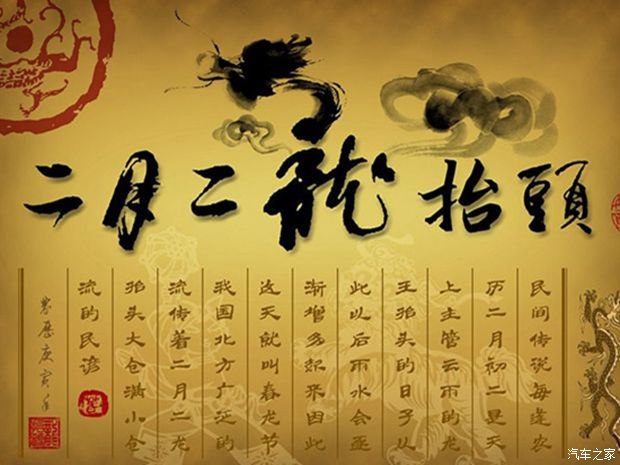 二月二龍抬頭
民间传说每逢农
历二月初二是天
上主管云雨的龙
王抬头的日子从
此以后雨水会逐
渐增多起来因此
这天就叫春龙节
我国北方广泛的
流传着二月二龙
抬头大仓满小仓
流的民谚
農歷庚寅年
汽车之家